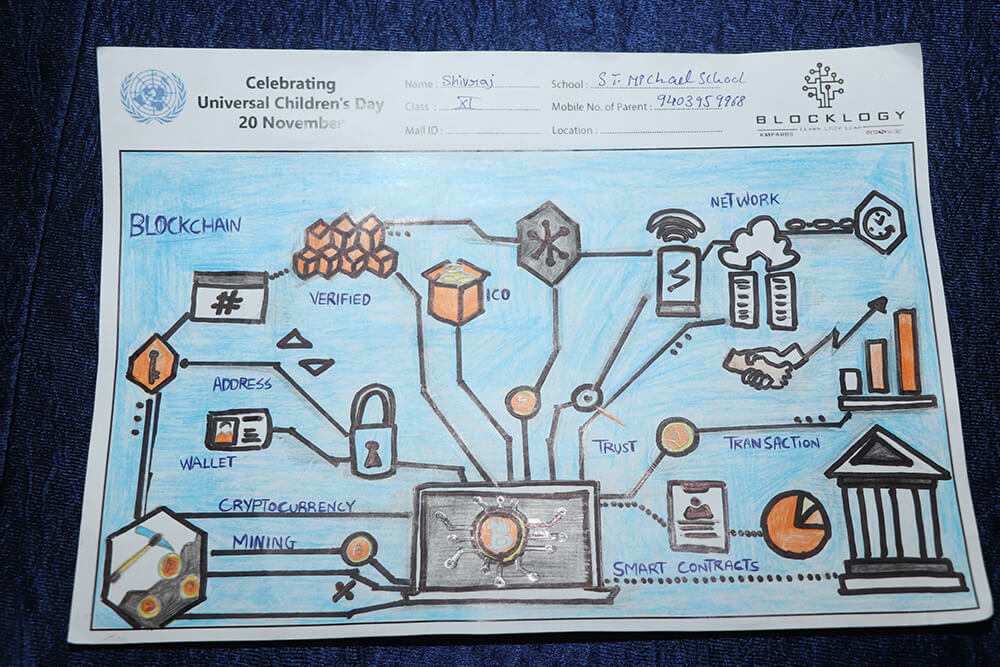 Celebrating
Universal Children's Day
20 November
Name : Shivraj
Class : XI
Mail ID :
School : ST. Michael School
Mobile No. of Parent : 9403959968
Location :
BLOCKLOGY
BLOCKCHAIN
NETWORK
VERIFIED
ICO
#
ADDRESS
WALLET
TRUST
TRANSACTION
CRYPTOCURRENCY
MINING
SMART CONTRACTS